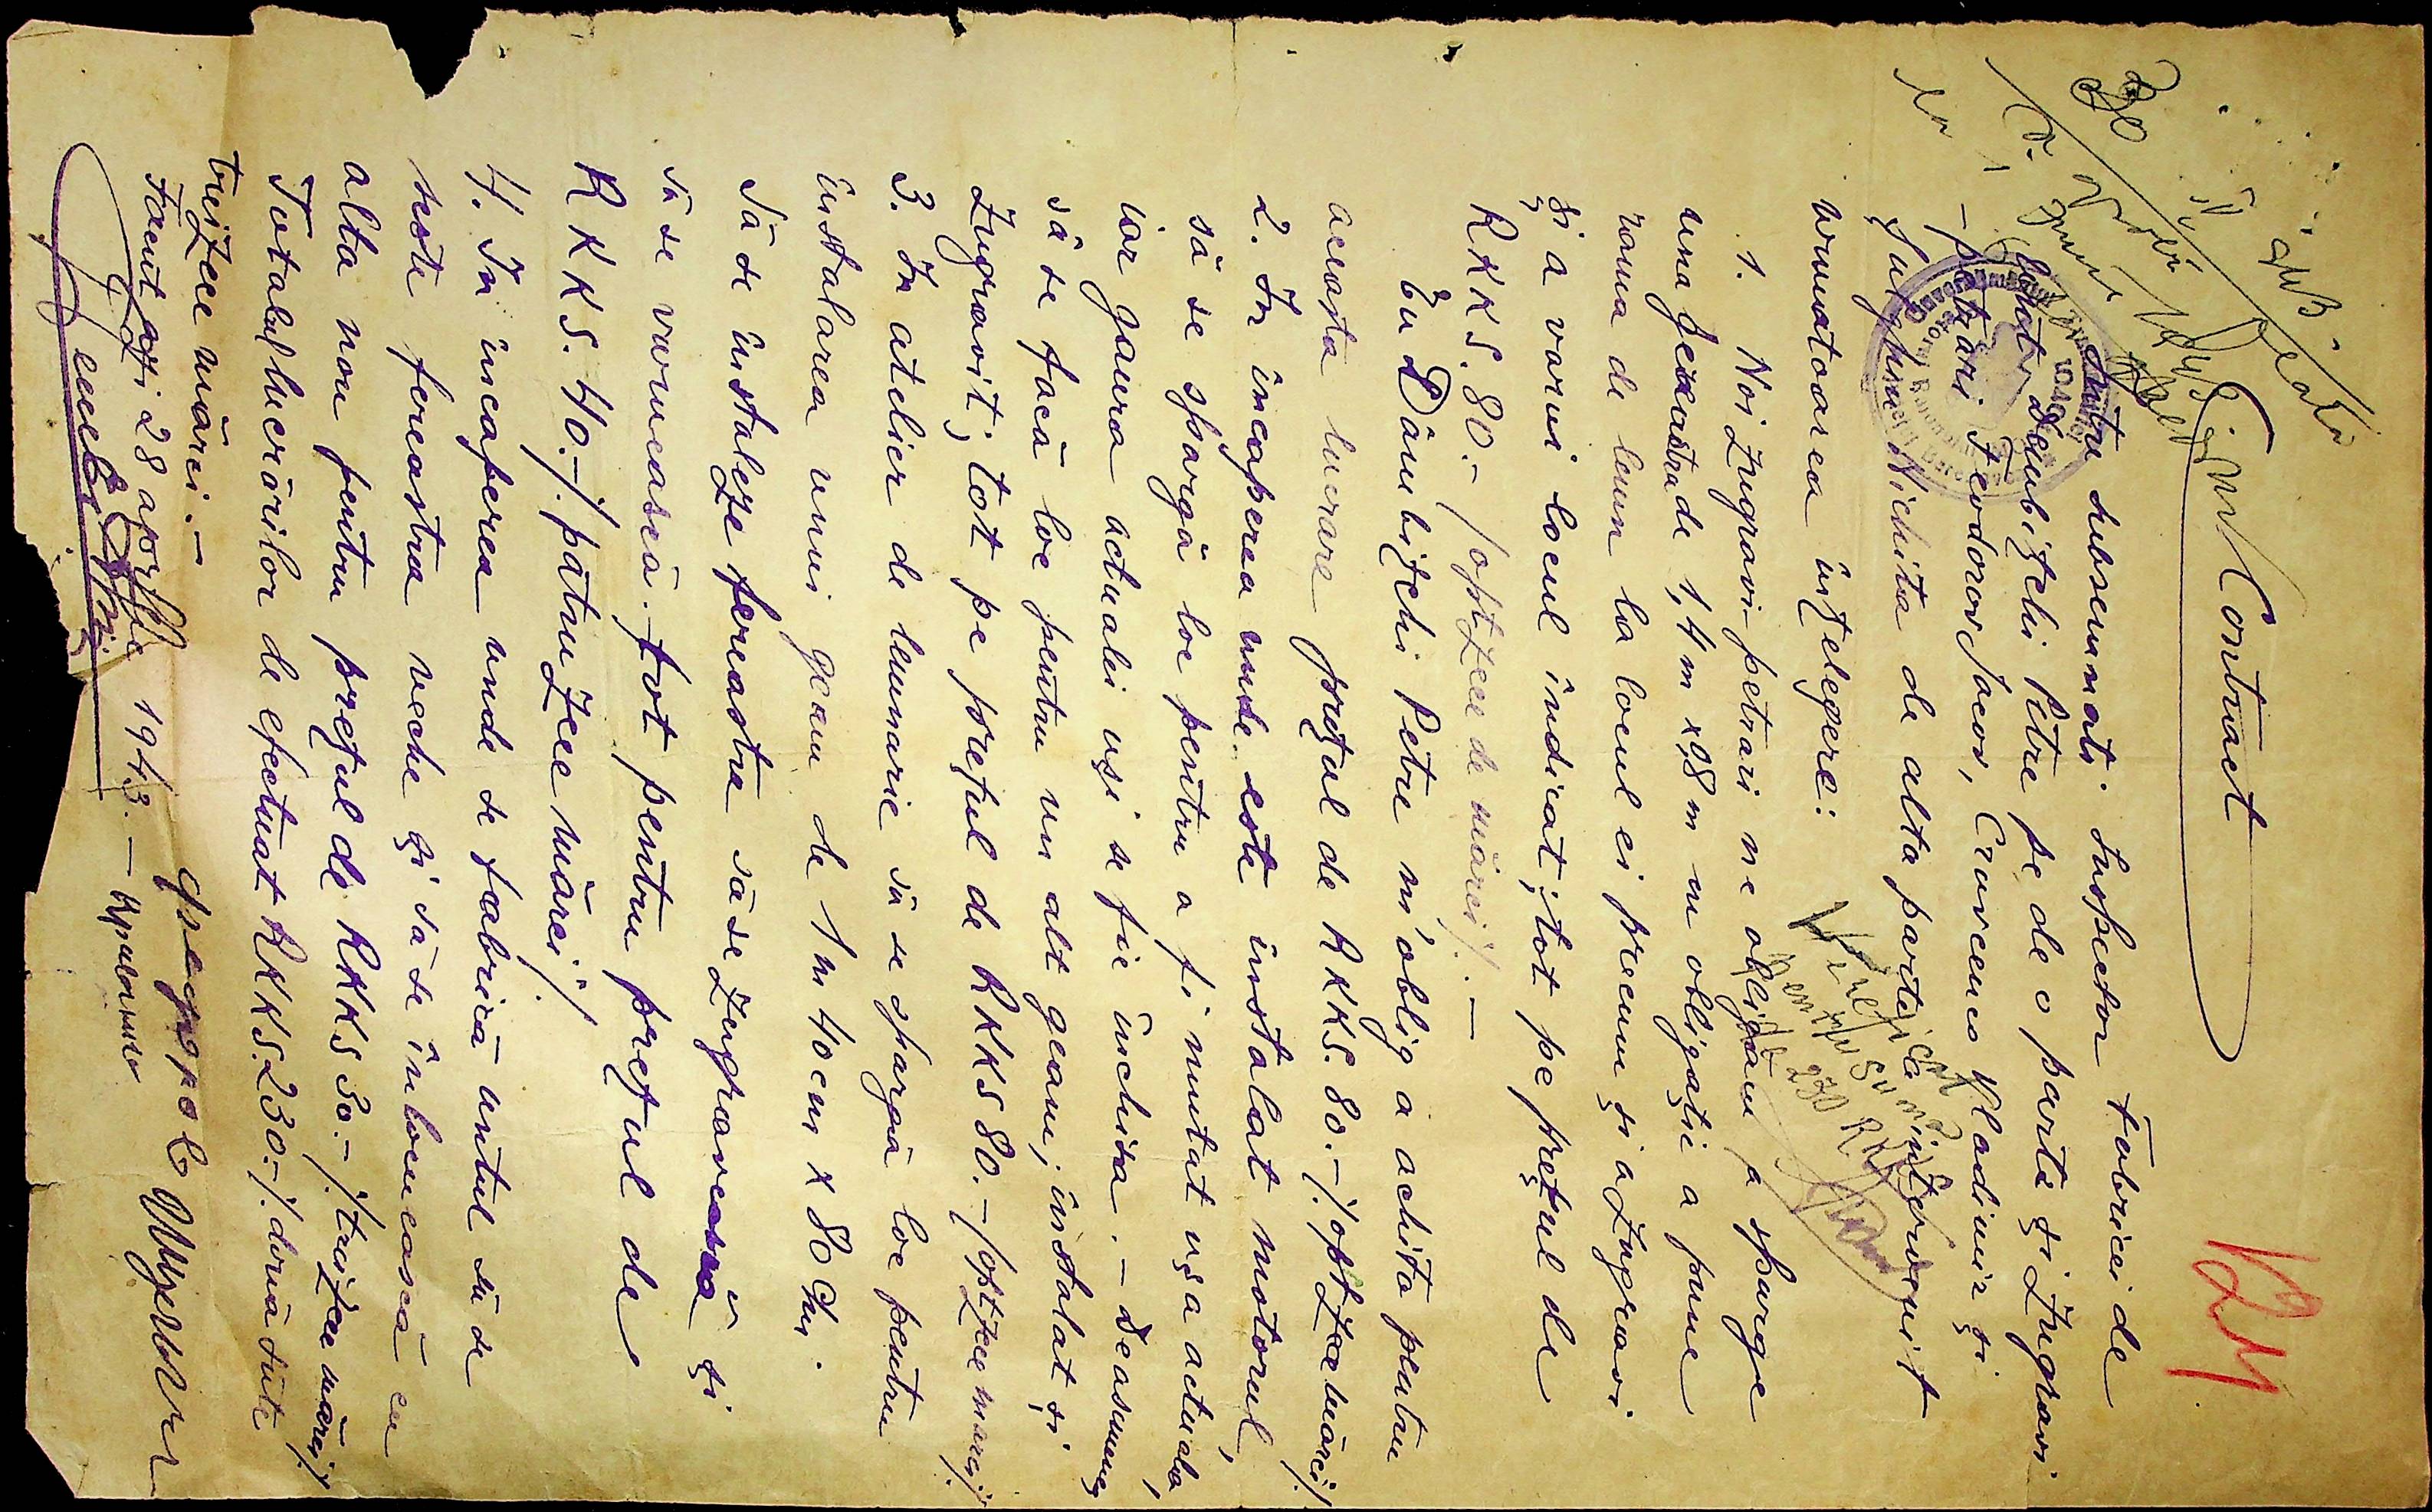 121
Contract
Intre subsemnati: Inspector Fabricei de
Dâmbițchi Petre pe de o parte și Zugravi
-petrari Feodorov Jacov, Cravcenco Vladimir și
Nichita de alta parte, a intervenit
urmatoarea ințelegere:
1. Noi Zugravi-petrari ne obligăm a sparge
una fereastra de 1,4 m x 98 m cu obligație a pune
rama de lemn la locul ei precum și a zugravi
și a varui locul indicat; tot pe prețul de
RKKS. 80.- /optzeci de mărci/. —
Eu Dâmbițchi Petre m'oblig a achita pentru
aceasta lucrare prețul de RKKS. 80.- /optzeci mărci/
2. In incaperea unde este instalat motorul,
să se spargă loc pentru a fi mutat ușa actuala,
iar gaura actualei uși se fie inchisa. - Deasemenea
să se facă loc pentru un alt geam, instalat și
zugravit; tot pe prețul de RKKS 80.- /optzeci marci/.
3. In atelier de lemnarie să se spargă loc pentru
instalarea unui geam de 1 m 40 cm x 80 cm.
Să se instaleze fereastra să se zugravească și
să se varuiască. Tot pentru prețul de
RKKS. 40.-/patruzeci mărci/
4. In incaperea unde se fabrică untul să se
scoate fereastra veche și să se înlocuiască cu
alta nou pentru prețul de RKKS 30.- /treizeci mărci/
Totalul lucrărilor de efectuat RKKS. 230.-/două sute
treizeci mărci. -
Facut azi 28 aprilie 1943. —
Verificat
pentru suma
de 230 RKKS